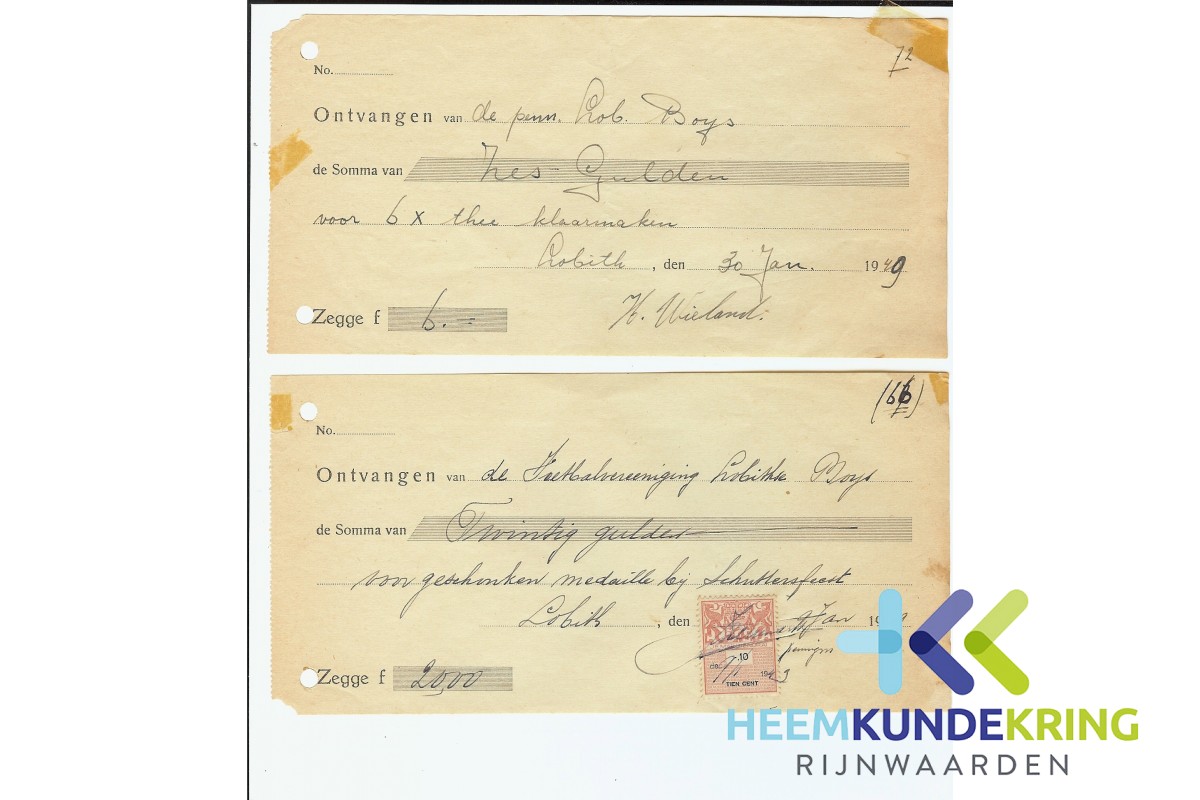 72
No.
Ontvangen van de penn. Lob. Boys
de Somma van Zes Gulden
voor 6 x thee klaarmaken
Lobith, den 30 Jan. 1949
H. Wieland.
Zegge f 6.-
(66)
No.
Ontvangen van de Voetbalvereeniging Lobithse Boys
de Somma van Twintig gulden
voor geschonken medaille bij Schuttersfeest
Lobith, den Jan 19
10
TIEN CENT
Zegge f 2000
HEEMKUNDEKRING
RIJNWAARDEN